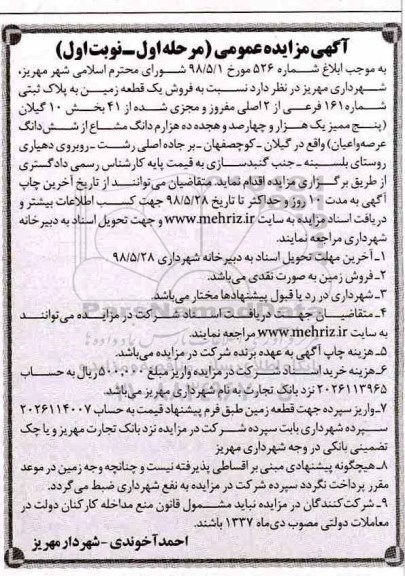 آگهی مزایده عمومی (مرحله اول ـ نوبت اول)
به موجب ابلاغ شماره ۵۲۶ مورخ ۹۸/۵/۱ شورای محترم اسلامی شهر مهریز،
شهرداری مهریز در نظر دارد نسبت به فروش یک قطعه زمین به پلاک ثبتی
شماره ۱۶۱ فرعی از ۲ اصلی مفروز و مجزی شده از ۴۱ بخش ۱۰ گیلان
(پنج ممیز یک هزار و چهارصد و هجده ده هزارم دانگ مشاع از شش دانگ
عرصه واعیان) واقع در گیلان ـ کوچصفهان ـ بر جاده اصلی رشت ـ روبروی دهیاری
روستای بلسبنه ـ جنب گنبدسازی به قیمت پایه کارشناس رسمی دادگستری
از طریق برگزاری مزایده اقدام نماید. متقاضیان می‌توانند از تاریخ آخرین چاپ
آگهی به مدت ۱۰ روز و حداکثر تا تاریخ ۹۸/۵/۲۸ جهت کسب اطلاعات بیشتر و
دریافت اسناد مزایده به سایت www.mehriz.ir و جهت تحویل اسناد به دبیرخانه
شهرداری مراجعه نمایند.
۱ـ آخرین مهلت تحویل اسناد به دبیرخانه شهرداری ۹۸/۵/۲۸
۲ـ فروش زمین به صورت نقدی می‌باشد.
۳ـ شهرداری در رد یا قبول پیشنهادها مختار می‌باشد.
۴ـ متقاضیان جهت دریافت اسناد شرکت در مزایده می‌توانند
به سایت www.mehriz.ir مراجعه نمایند.
۵ـ هزینه چاپ آگهی به عهده برنده شرکت در مزایده می‌باشد.
۶ـ هزینه خرید اسناد شرکت در مزایده واریز مبلغ ۵۰۰,۰۰۰ ریال به حساب
۲۰۲۶۱۱۳۹۶۵ نزد بانک تجارت به نام شهرداری مهریز می‌باشد.
۷ـ واریز سپرده جهت قطعه زمین طبق فرم پیشنهاد قیمت به حساب ۲۰۲۶۱۱۴۰۰۷
سپرده شهرداری بابت سپرده شرکت در مزایده نزد بانک تجارت مهریز و یا چک
تضمینی بانکی در وجه شهرداری مهریز
۸ـ هیچگونه پیشنهادی مبنی بر اقساطی پذیرفته نیست و چنانچه وجه زمین در موعد
مقرر پرداخت نگردد سپرده شرکت در مزایده به نفع شهرداری ضبط می‌گردد.
۹ـ شرکت‌کنندگان در مزایده نباید مشمول قانون منع مداخله کارکنان دولت در
معاملات دولتی مصوب دی‌ماه ۱۳۳۷ باشند.
احمد آخوندی - شهردار مهریز